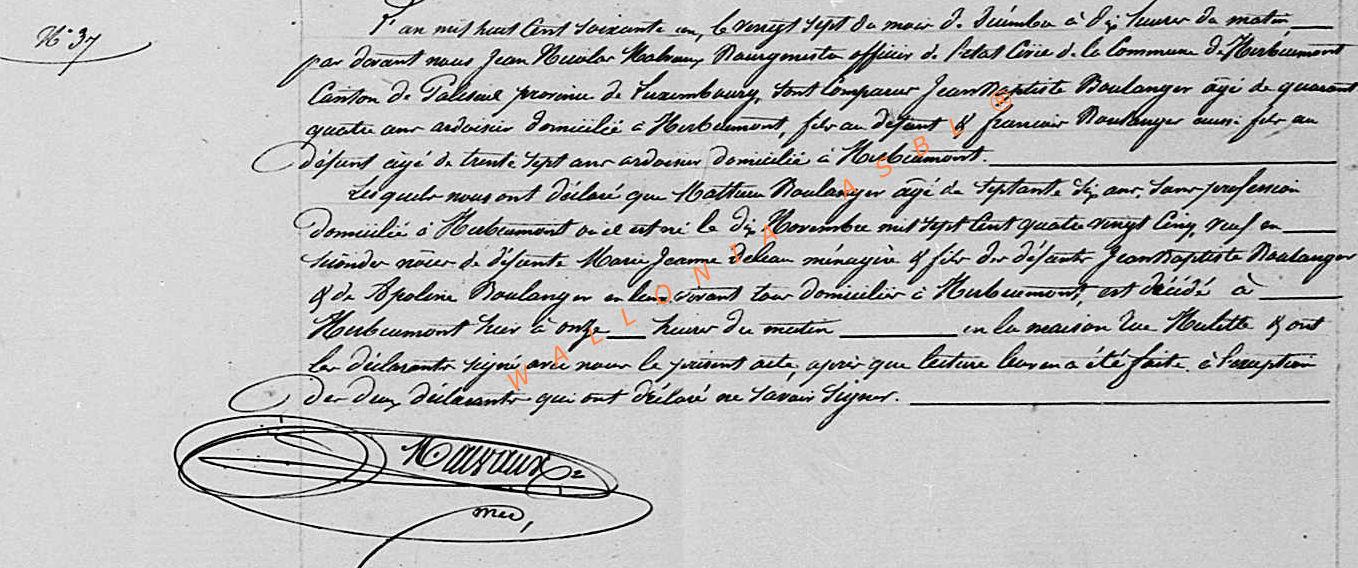 N° 37
L'an mil huit Cent soixante un, le vingt sept du mois de décembre à dix heures du matin
par devant nous Jean Nicolas Malvaux Bourgmestre officier de l'état Civil de la Commune de Herbeumont
Canton de Paliseul province de Luxembourg, sont Comparus Jean Baptiste Boulanger âgé de quarant
quatre ans ardoisier domicilié à Herbeumont, fils au défunt & francois Boulanger aussi fils au
défunt âgé de trente sept ans ardoisier domicilié à Herbeumont.
Lesquels nous ont déclaré que Mathieu Boulanger âgé de septante six ans, sans profession
domicilié à Herbeumont où il est né le dix Novembre mil sept Cent quatre vingt Cinq, veuf en
secondes nôces de défunte Marie Jeanne ménagère & fils des défunts Jean Baptiste Boulanger
& de Apoline Boulanger en leur vivant tous domiciliés à Herbeumont, est décédé à
Herbeumont hier à onze heures du matin en la maison rue Hulette & ont
les déclarants signé avec nous le présent acte, après que lecture leur en a été faite, à l'exception
des deux déclarants qui ont déclaré ne savoir signer.
Malvaux
WALLONIA ASBL ®